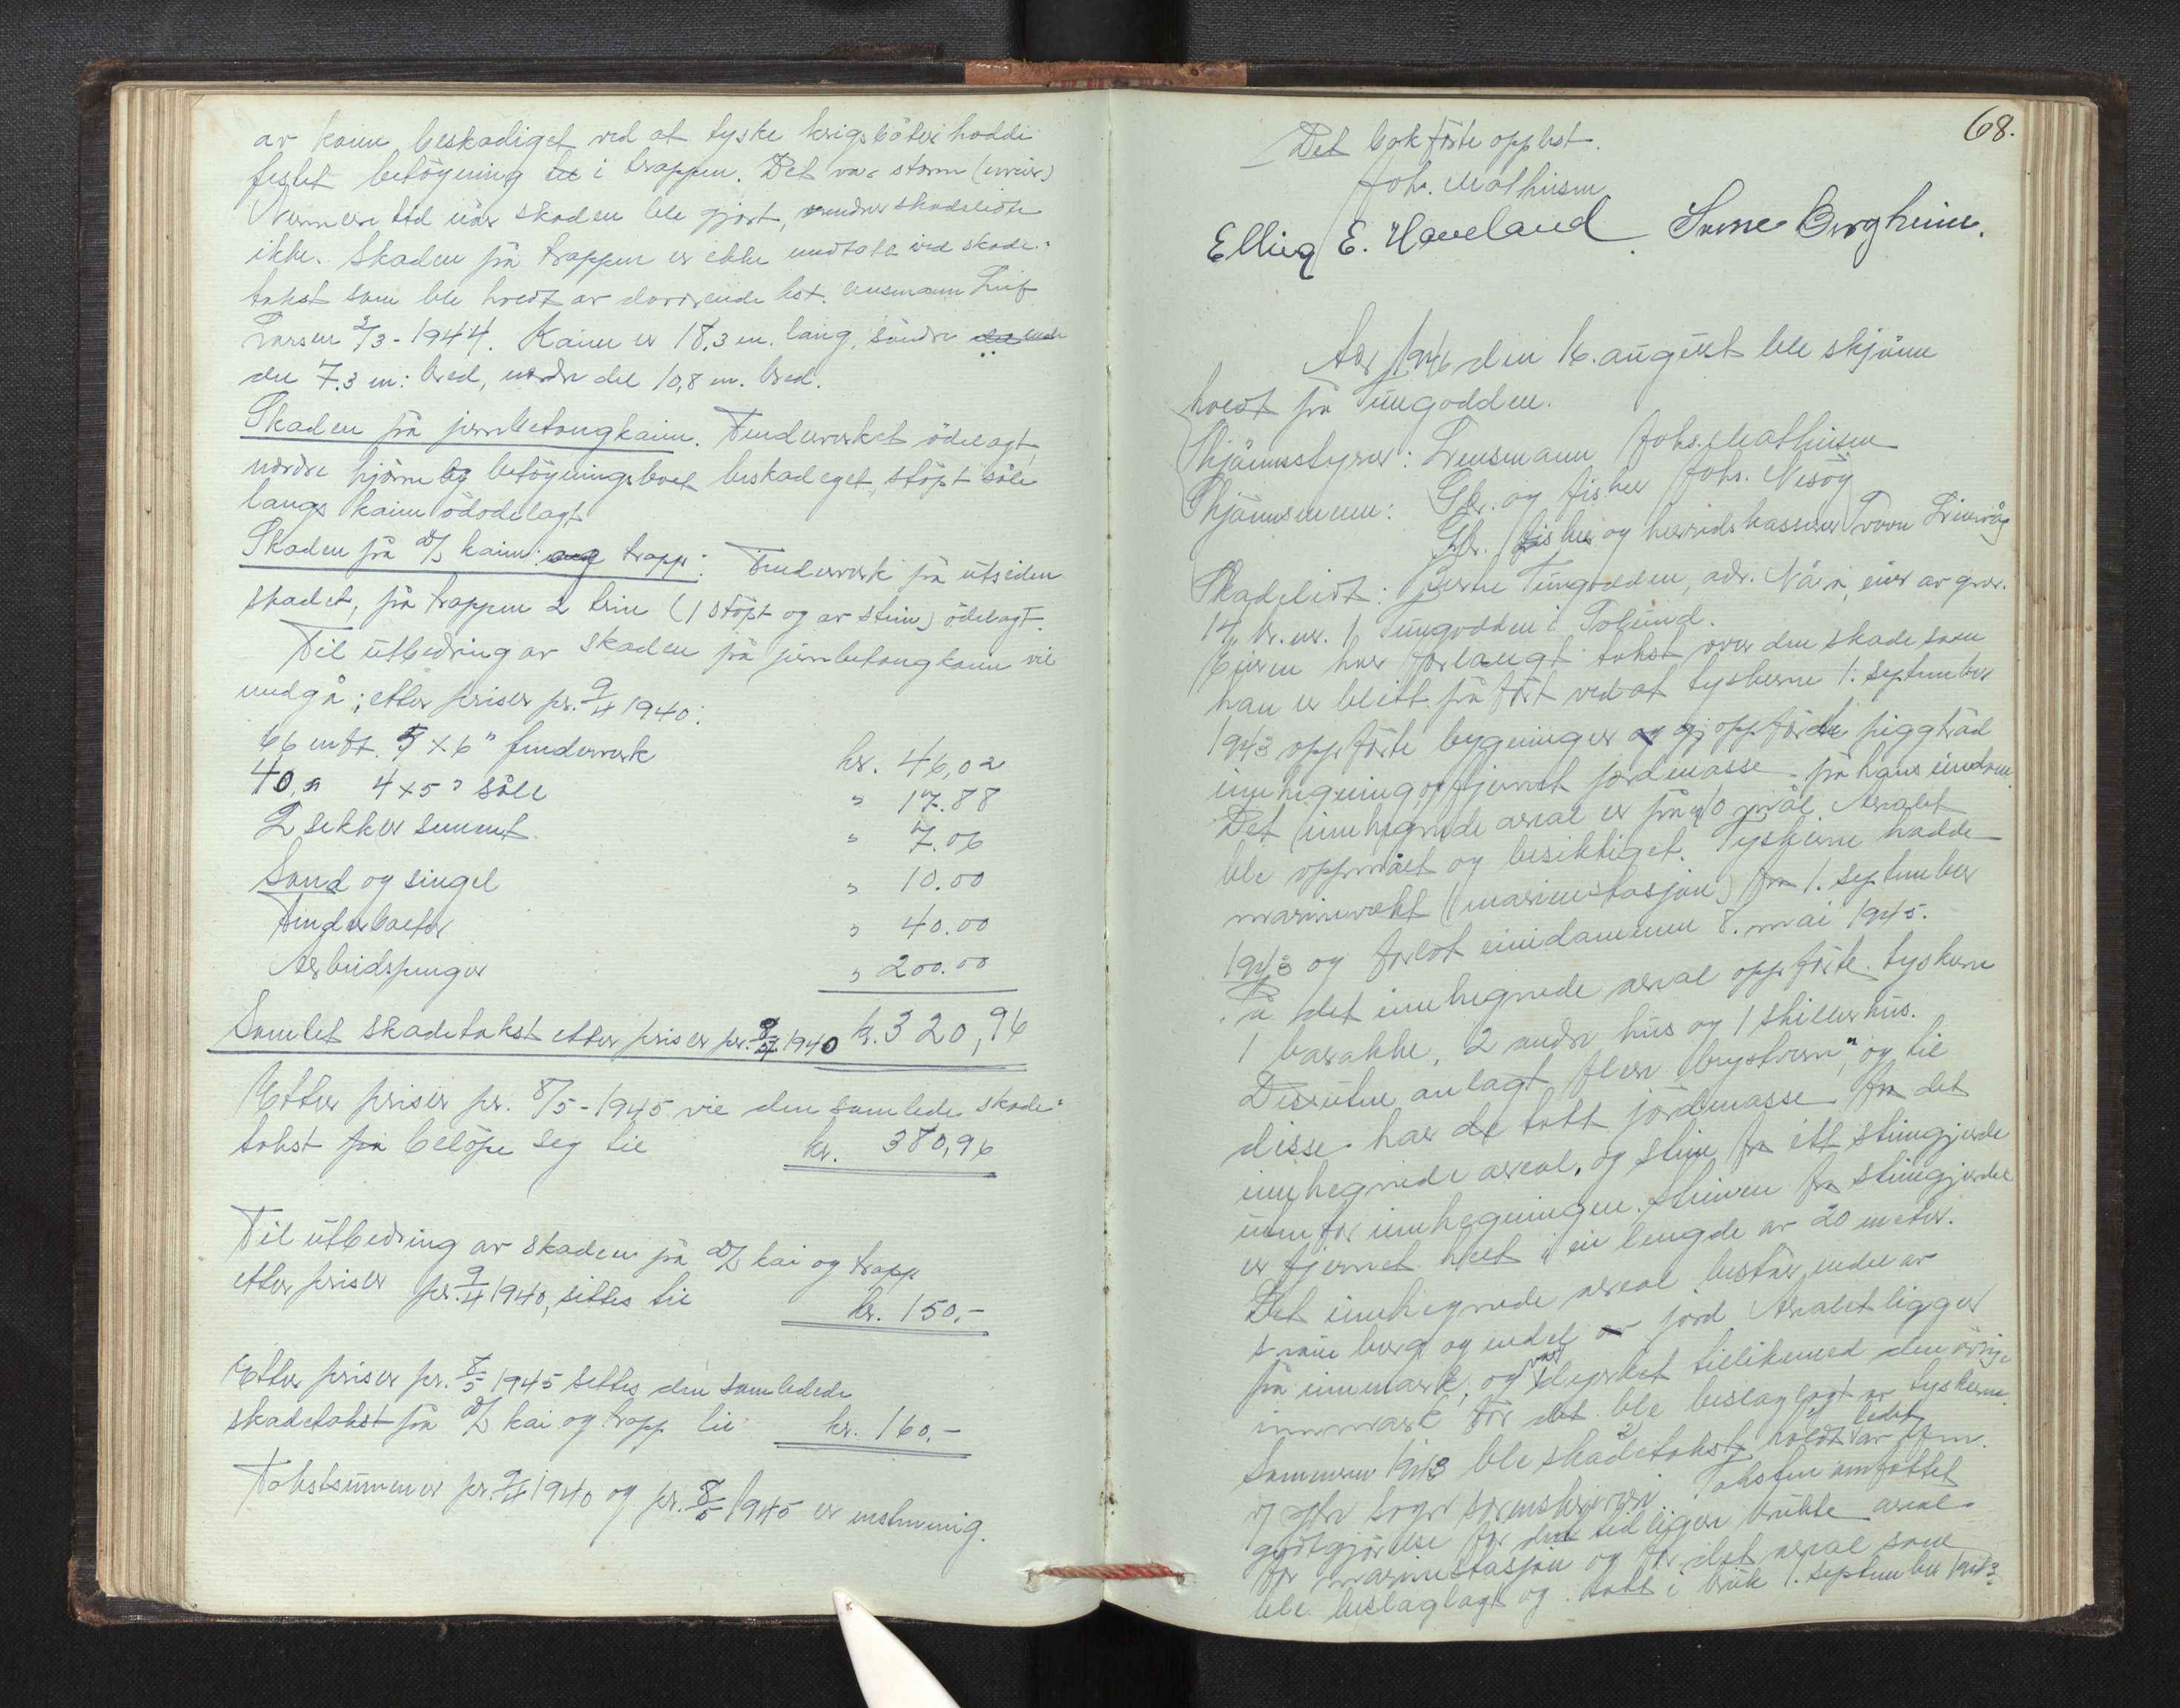 av kaien beskadiget ved at tyske krigsbåter hadde
festet betøyening i trappen. Det var storm
Nærmere tid når skaden ble gjort, skadelidte
ikke. Skaden på trappen er ikke medtatt ved skade-
takst som ble holdt av daværende kst. lensmann Leif
Larsen 2/3-1944. Kaien er 18,3 m. lang, søndre
del 7,3 m. bred, nordre del 10,8 m. bred.
Skaden på jernbetongkaien. Fenderverket ødelagt,
nordre hjørne og betøyningsbolt beskadeget, støpt søle
langs kaien ødelagt
Skaden på d/s kaien og trapp: Fenderverk på utsiden
skadet, på trappen 2 trin (1 støpt og av stein) ødelagt.
Til utbedring av skaden på jernbetongkaien vil
medgå; etter priser pr. 9/4 1940:
66 mtr. 5 x 6" fenderverk kr. 46,02
40 " 4 x 5" søle " 17.88
2 sekker sement " 7.06
Sand og singel " 10.00
Fenderbolter " 40.00
Arbeidspenger " 200.00
Samlet skadetakst etter priser pr. 9/4 1940 kr. 320,96
Etter priser pr. 8/5-1945 vil den samlede skade-
takst på beløpe seg til kr. 380,96
Til utbedring av skaden på d/s kai og trapp
etter priser pr. 9/4 1940, settes til kr. 150.-
Etter priser pr. 8/5 1945 settes den samlede
skadetakst på d/s kai og trapp til kr. 160.-
Takstsummer pr. 9/4 1940 og pr. 8/5 1945 er enstemmig.
68.
Det bokførte opplest.
Joh. Mathiesen
Elling E. Haveland. Sverre Bergheim.
Aar 1946 den 16. august ble skjønn
holdt på Tungodden.
Skjønnsstyrer: Lensmann Johs. Mathiesen
Skjønnsmenn: Gbr. og fisker Johs. Nesøy
Gbr. fisker og herredskasserer
Skadelidt: Tungodden, adr. Nåra, eier av gnr.
14, br.nr. 1 Tungodden i Solund.
Eieren har forlangt takst over den skade som
han er blitt påført ved at tyskerne 1. september
1943 oppførte bygninger og oppførte piggtråd
innhegning, og fjernet jordmasse på hans eiendom.
Det innhegnede areal er på 10 mål. Arealet
ble oppmålt og besiktiget. Tyskerne hadde
marinevakt (marinestasjon) fra 1. september
1943 og forlot eiendommen 8. mai 1945.
På det innhegnede areal oppførte tyskerne
1 barakke, 2 andre hus og 1 skillerhus.
Dessuten anlagt flere "brystvern", og til
disse har de tatt jordmasse fra det
innhegnede areal, og stein fra ett steingjerde
utenfor innhegningen. Steinen fra steingjerdet
er fjernet helt i en lengde av 20 meter.
Det innhegnede areal består endel av
snau berg og endel av jord. Arealet ligger
på innmark, og var dyrket tillikemed den øvrige
innmark før det ble beslaglagt av tyskerne.
Sommeren 1943 ble skadetakst holdt ledet av
ytre Sogn sorenskriveri. Taksten omfattet
godtgjørelse for det tidligere brukte areal
for marinestasjon og for det areal som
ble beslaglagt og tatt i bruk 1. september 1943.